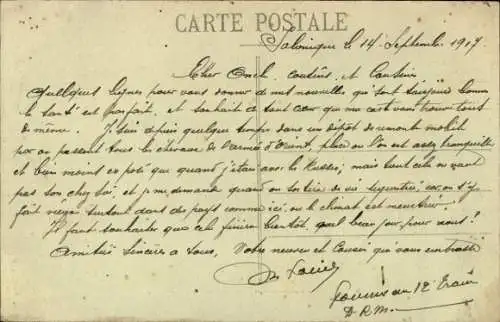 CARTE POSTALE
Salonique le 14 Septembre 1917
Cher Oncle, cousins, et Cousine
Quelques lignes pour vous donner de mes nouvelles qui sont toujours bonne
la santé est parfait, et souhait de tout cœur que ma carte vous trouve tous
de même. Je suis depuis quelque temps dans un dépôt de remont mobil
par on passent tous les chevaux de l'armée d'Orient, place ou l'on est assez tranquille
et bien moins exposé que quand j'étais avec le ; mais tout cela ne vaut
pas son chez soi et je me demande quand on sortira de vie car on s'y
fait vieux surtout dans des pays comme ici ou le climat est meurtrier.
Il faut souhaiter que cela finira bientôt, quel beau jour pour nous!
Amitiés sincères a tous, Votre neveu et Cousin qui vous embrasse
Louis
au 12e Train
D.R.M.